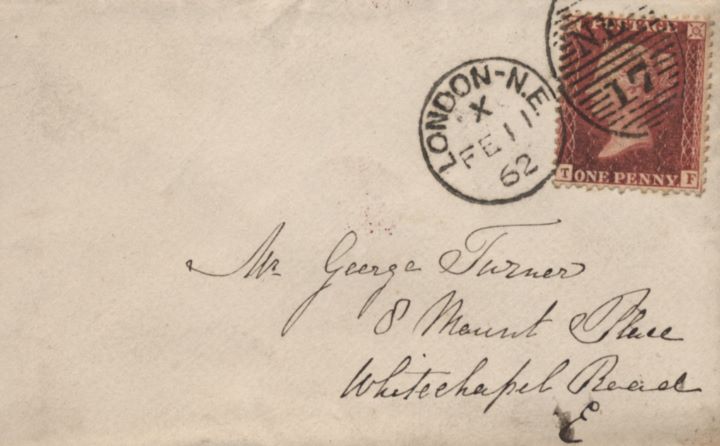 LONDON-N.E
X
FE 11
62
POSTAGE
N.E
17
T ONE PENNY F
Mr George Turner
8 Mount Place
Whitechapel Road
E